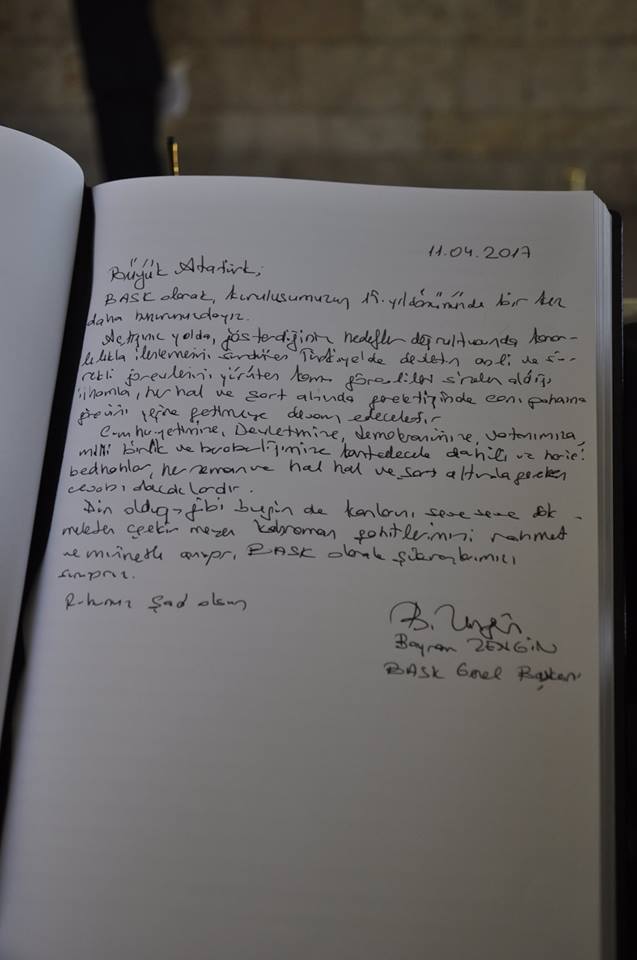 11.04.2017
Büyük Atatürk,
BASK olarak, kuruluşumuzun 15. yıldönümünde bir kez
daha huzurundayız.
Açtığınız yolda, gösterdiğiniz hedefler doğrultusunda karar-
lılıkla ilerlemesini sürdüren Türkiye'de devletin asli ve sü-
rekli görevlerini yürüten kamu görevlileri sizden aldığı
ilhamla, her hal ve şart altında gerektiğinde canı pahasına
görevini yerine getirmeye devam edecektir.
Cumhuriyetimize, Devletimize, demokrasimize, vatanımıza,
milli birlik ve beraberliğimize kastedecek dahili ve harici
bedhahlar, her zaman ve hal ve şart altında gereken
cevabı alacaklardır.
Dün olduğu gibi bugün de kanlarını seve seve dök-
mekten çekinmeyen kahraman şehitlerimizi rahmet
ve minnetle anıyor, BASK olarak şükranlarımızı
sunuyoruz.
Ruhunuz şad olsun
Bayram ZENGİN
BASK Genel Başkanı